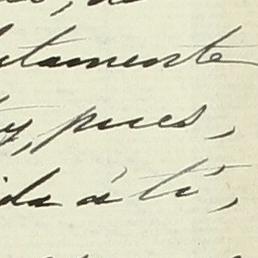 tamente
y, pues,
ida á tí,